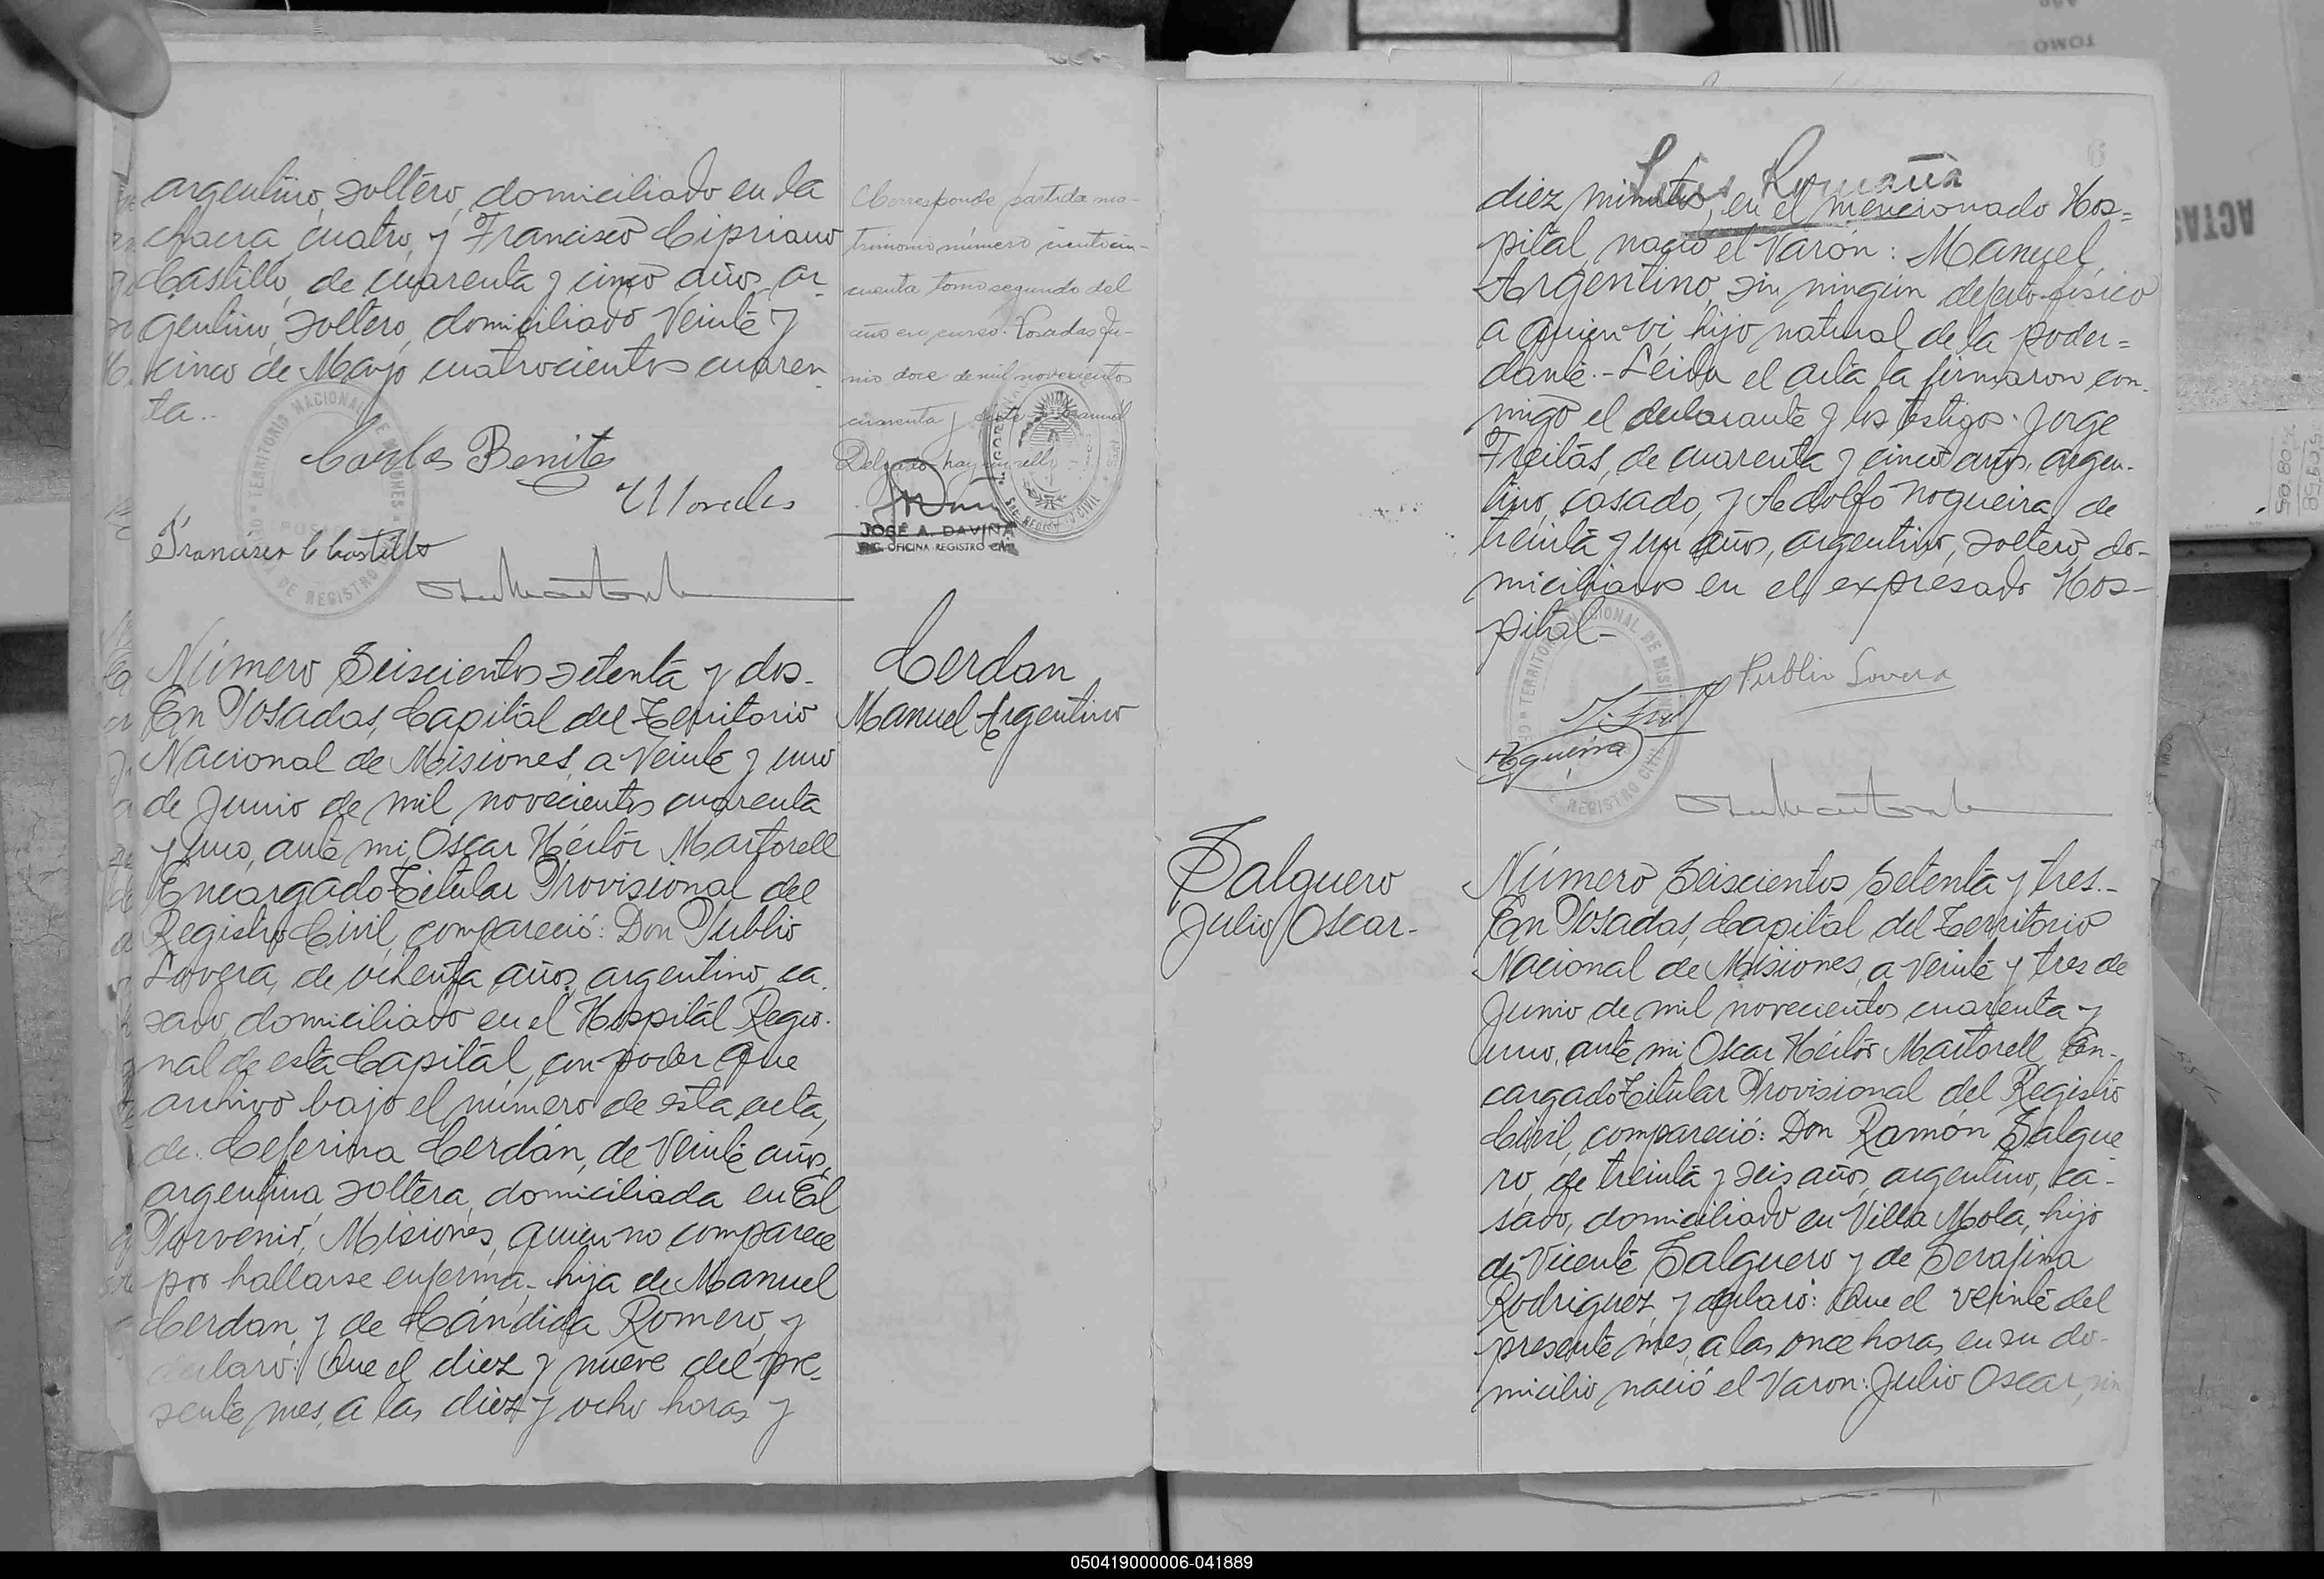 argentino, soltero, domiciliado en la
chacra cuatro, y Francisco Cipriano
Castillo, de cuarenta y cinco años, ar-
gentino, soltero, domiciliado Veinte y
cinco de Mayo cuatrocientos cuaren-
ta.-
Carlos Benitez
Morales
Francisco C Castillo
Corresponde partida ma-
trimonio número cientocin-
cuenta tomo segundo del
año en curso. Posadas Ju-
nio doce de mil novecientos
cuarenta y siete Manuel
Delgado hay un sello
JOSÉ A. DAVIÑA
ENC. OFICINA REGISTRO CIVIL
Número Seiscientos setenta y dos.-
En Posadas, Capital del Territorio
Nacional de Misiones, a Veinte y uno
de Junio de mil novecientos cuarenta
y uno, ante mi, Oscar Héctor Martorell
Encargado Titular Provisional del
Registro Civil, compareció: Don Publio
Lovera, de ochenta años, argentino, ca-
sado, domiciliado en el Hospital Regio-
nal de esta Capital, con poder que
archivo bajo el número de esta acta,
de Ceferina Cerdán, de Veinte años,
argentina, soltera, domiciliada en El
Porvenir, Misiones, quien no comparece
por hallarse enferma, hija de Manuel
Cerdan y de Cándida Romero, y
declaró: Que el diez y nueve del pre-
sente mes, a las diez y ocho horas y
Cerdan
Manuel Argentino
Luis Romaña
diez minutos, en el mencionado Hos=
pital, nació el Varón: Manuel
Argentino, sin ningún defecto físico
a quien vi, hijo natural de la poder=
dante.- Leida el acta la firmaron con-
migo el declarante y los testigos: Jorge
Freitas, de cuarenta y cinco años, argen-
tino, casado, y Adolfo Nogueira, de
treinta y un años, argentino, soltero, do-
miciliados en el expresado Hos-
pital.-
Publio Lovera
Salguero
Julio Oscar.-
Número Seiscientos Setenta y tres.-
En Posadas, Capital del Territorio
Nacional de Misiones, a Veinte y tres de
Junio de mil novecientos cuarenta y
uno, ante mi Oscar Héctor Martorell, En-
cargado Titular Provisional del Registro
Civil, compareció: Don Ramón Salgue
ro, de treinta y seis años, argentino, ca-
sado, domiciliado en Villa Mola, hijo
de Vicente Salguero y de Serafina
Rodriguez, y declaró: Que el veinte del
presente mes, a las once horas, en su do-
micilio nació el Varon: Julio Oscar, sin
TOMO
ACTAS
050419000006-041889